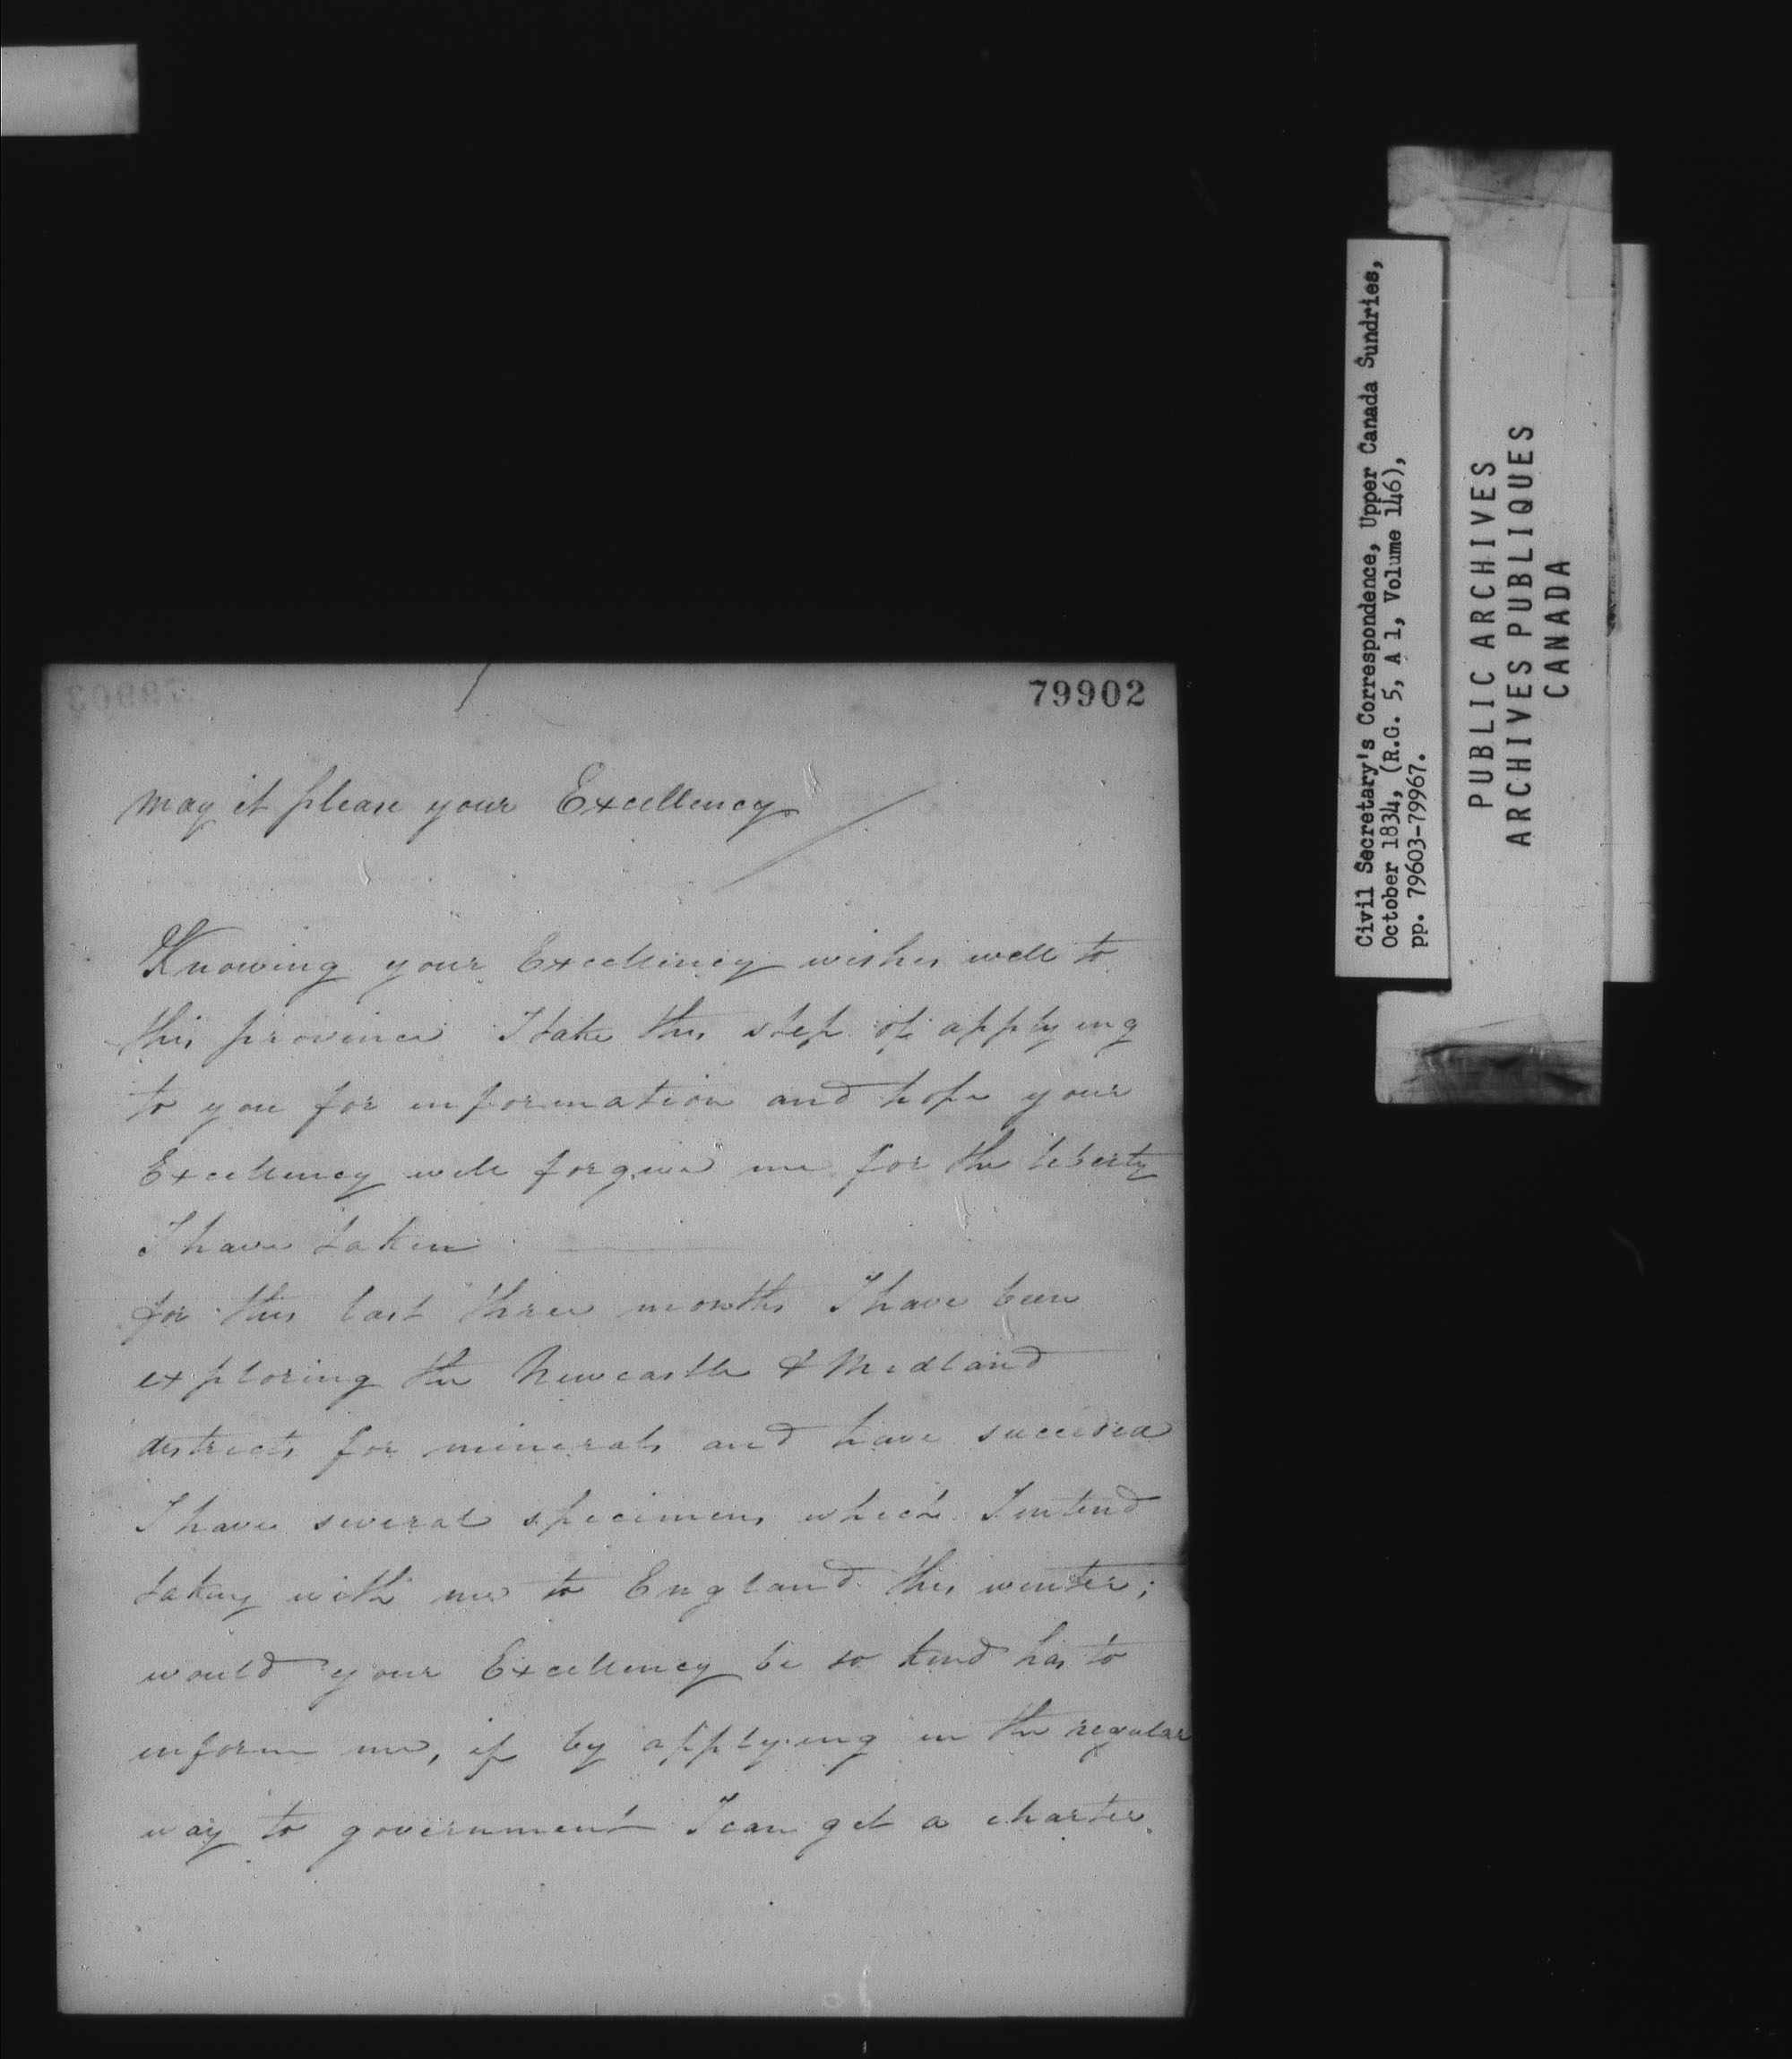 79902
May it please your Excellency
Knowing your Excellency wishes well to
this province I take this step of applying
to you for information and hope your
Excellency will forgive me for the liberty
I have taken
for this last three months I have been
exploring the Newcastle & Midland
districts for minerals and have succeeded
I have several specimens which I intend
taking with me to England this winter;
would your Excellency be so kind has to
inform me, if by applying in the regular
way to government I can get a charter
Civil Secretary's Correspondence, Upper Canada Sundries,
October 1834, (R.G. 5, A 1, Volume 146),
pp. 79603-79967.
PUBLIC ARCHIVES
ARCHIVES PUBLIQUES
CANADA